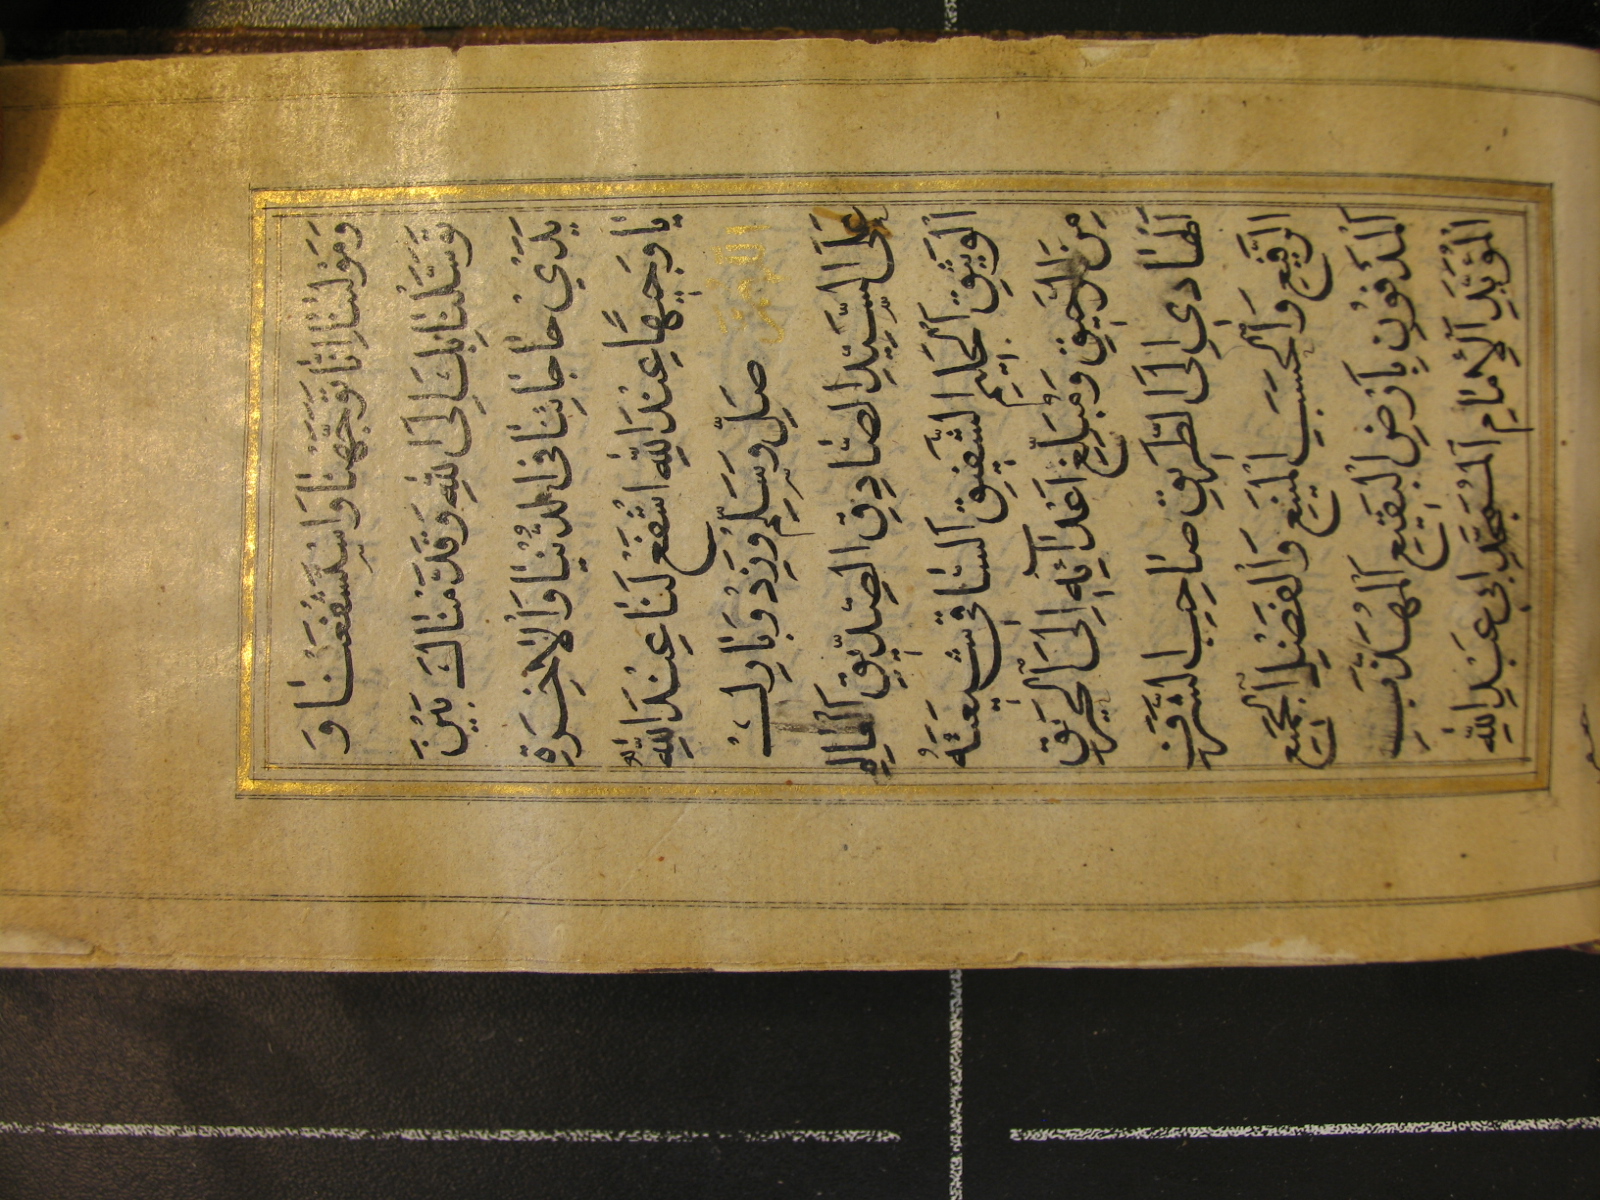 وَمَوْلٰينَا اِنَّا تَوَجَّهْنَا وَاسْتَشْفَعْنَا وَ
تَوَسَّلْنَا بِكَ اِلَى اللّٰهِ وَقَدَّمْنَاكَ بَيْنَ
يَدَيْ حَاجَاتِنَا فِى الدُّنْيَا وَالْاٰخِرَةِ
يَا وَجِيهًا عِنْدَ اللّٰهِ اشْفَعْ لَنَا عِنْدَ اللّٰهِ
اَللّٰهُمَّ صَلِّ وَسَلِّمْ وَزِدْ وَبَارِكْ
عَلَى السَّيِّدِ الصَّادِقِ الصِّدِّيقِ الْعَالِمِ
الْوَثِيقِ الْحَلِيمِ الشَّفِيقِ السَّاقِى شِيعَتَهُ
مِنَ الرَّحِيقِ وَمُبَلِّغِ اَعْدَآئِهِ اِلَى الْحَرِيقِ
الْهَادِي اِلَى الطَّرِيقِ صَاحِبِ الشَّرَفِ
الرَّفِيعِ وَالْحَسَبِ الْمَنِيعِ وَالْفَضْلِ الْجَمِيعِ
الْمَدْفُونِ بِاَرْضِ الْبَقِيعِ الْمُهَذَّبِ
الْمُؤَيَّدِ الْاِمَامِ الْمُمَجَّدِ اَبِى عَبْدِ اللّٰهِ